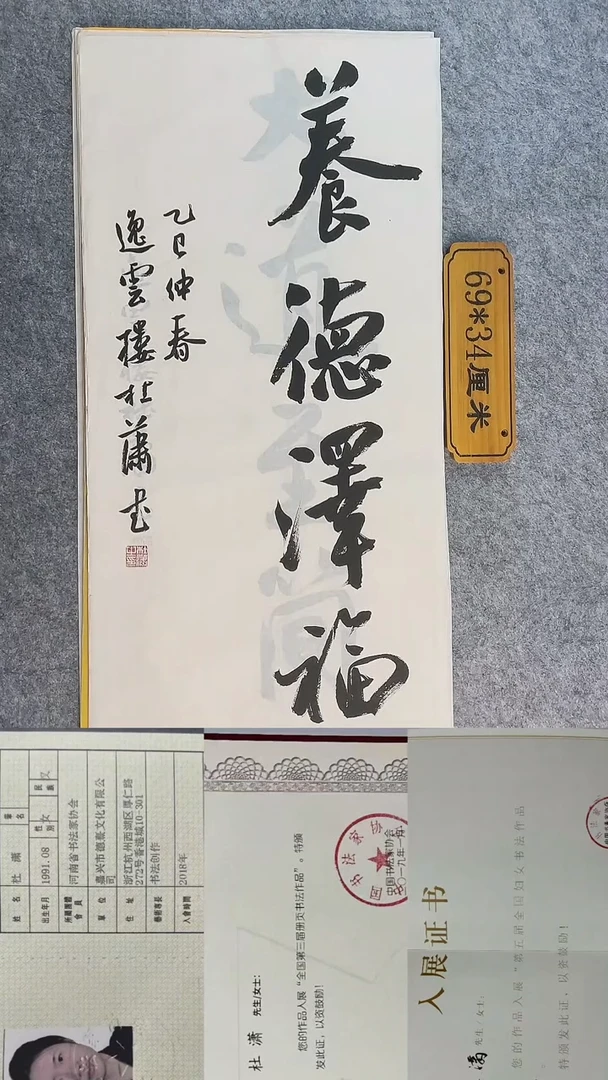 養德澤福
乙巳仲春
逸雲樓杜蕭書
69*34厘米
姓名 杜潇
性别 女
民族 汉
出生年月 1991.08
所屬團體會員 河南省书法家协会
單位 嘉兴市德薮文化有限公司
住址 浙江杭州西湖区厚仁路272号香港城10-301
藝術專長 书法创作
入會時間 2018年
杜潇 先生/女士:
您的作品入展“全国第三届册页书法作品”。特颁
发此证,以资鼓励!
中国书法家协会
二〇一九年一月
入展证书
先生/女士:
您的作品入展“第五届全国妇女书法作品
特颁发此证,以资鼓励!